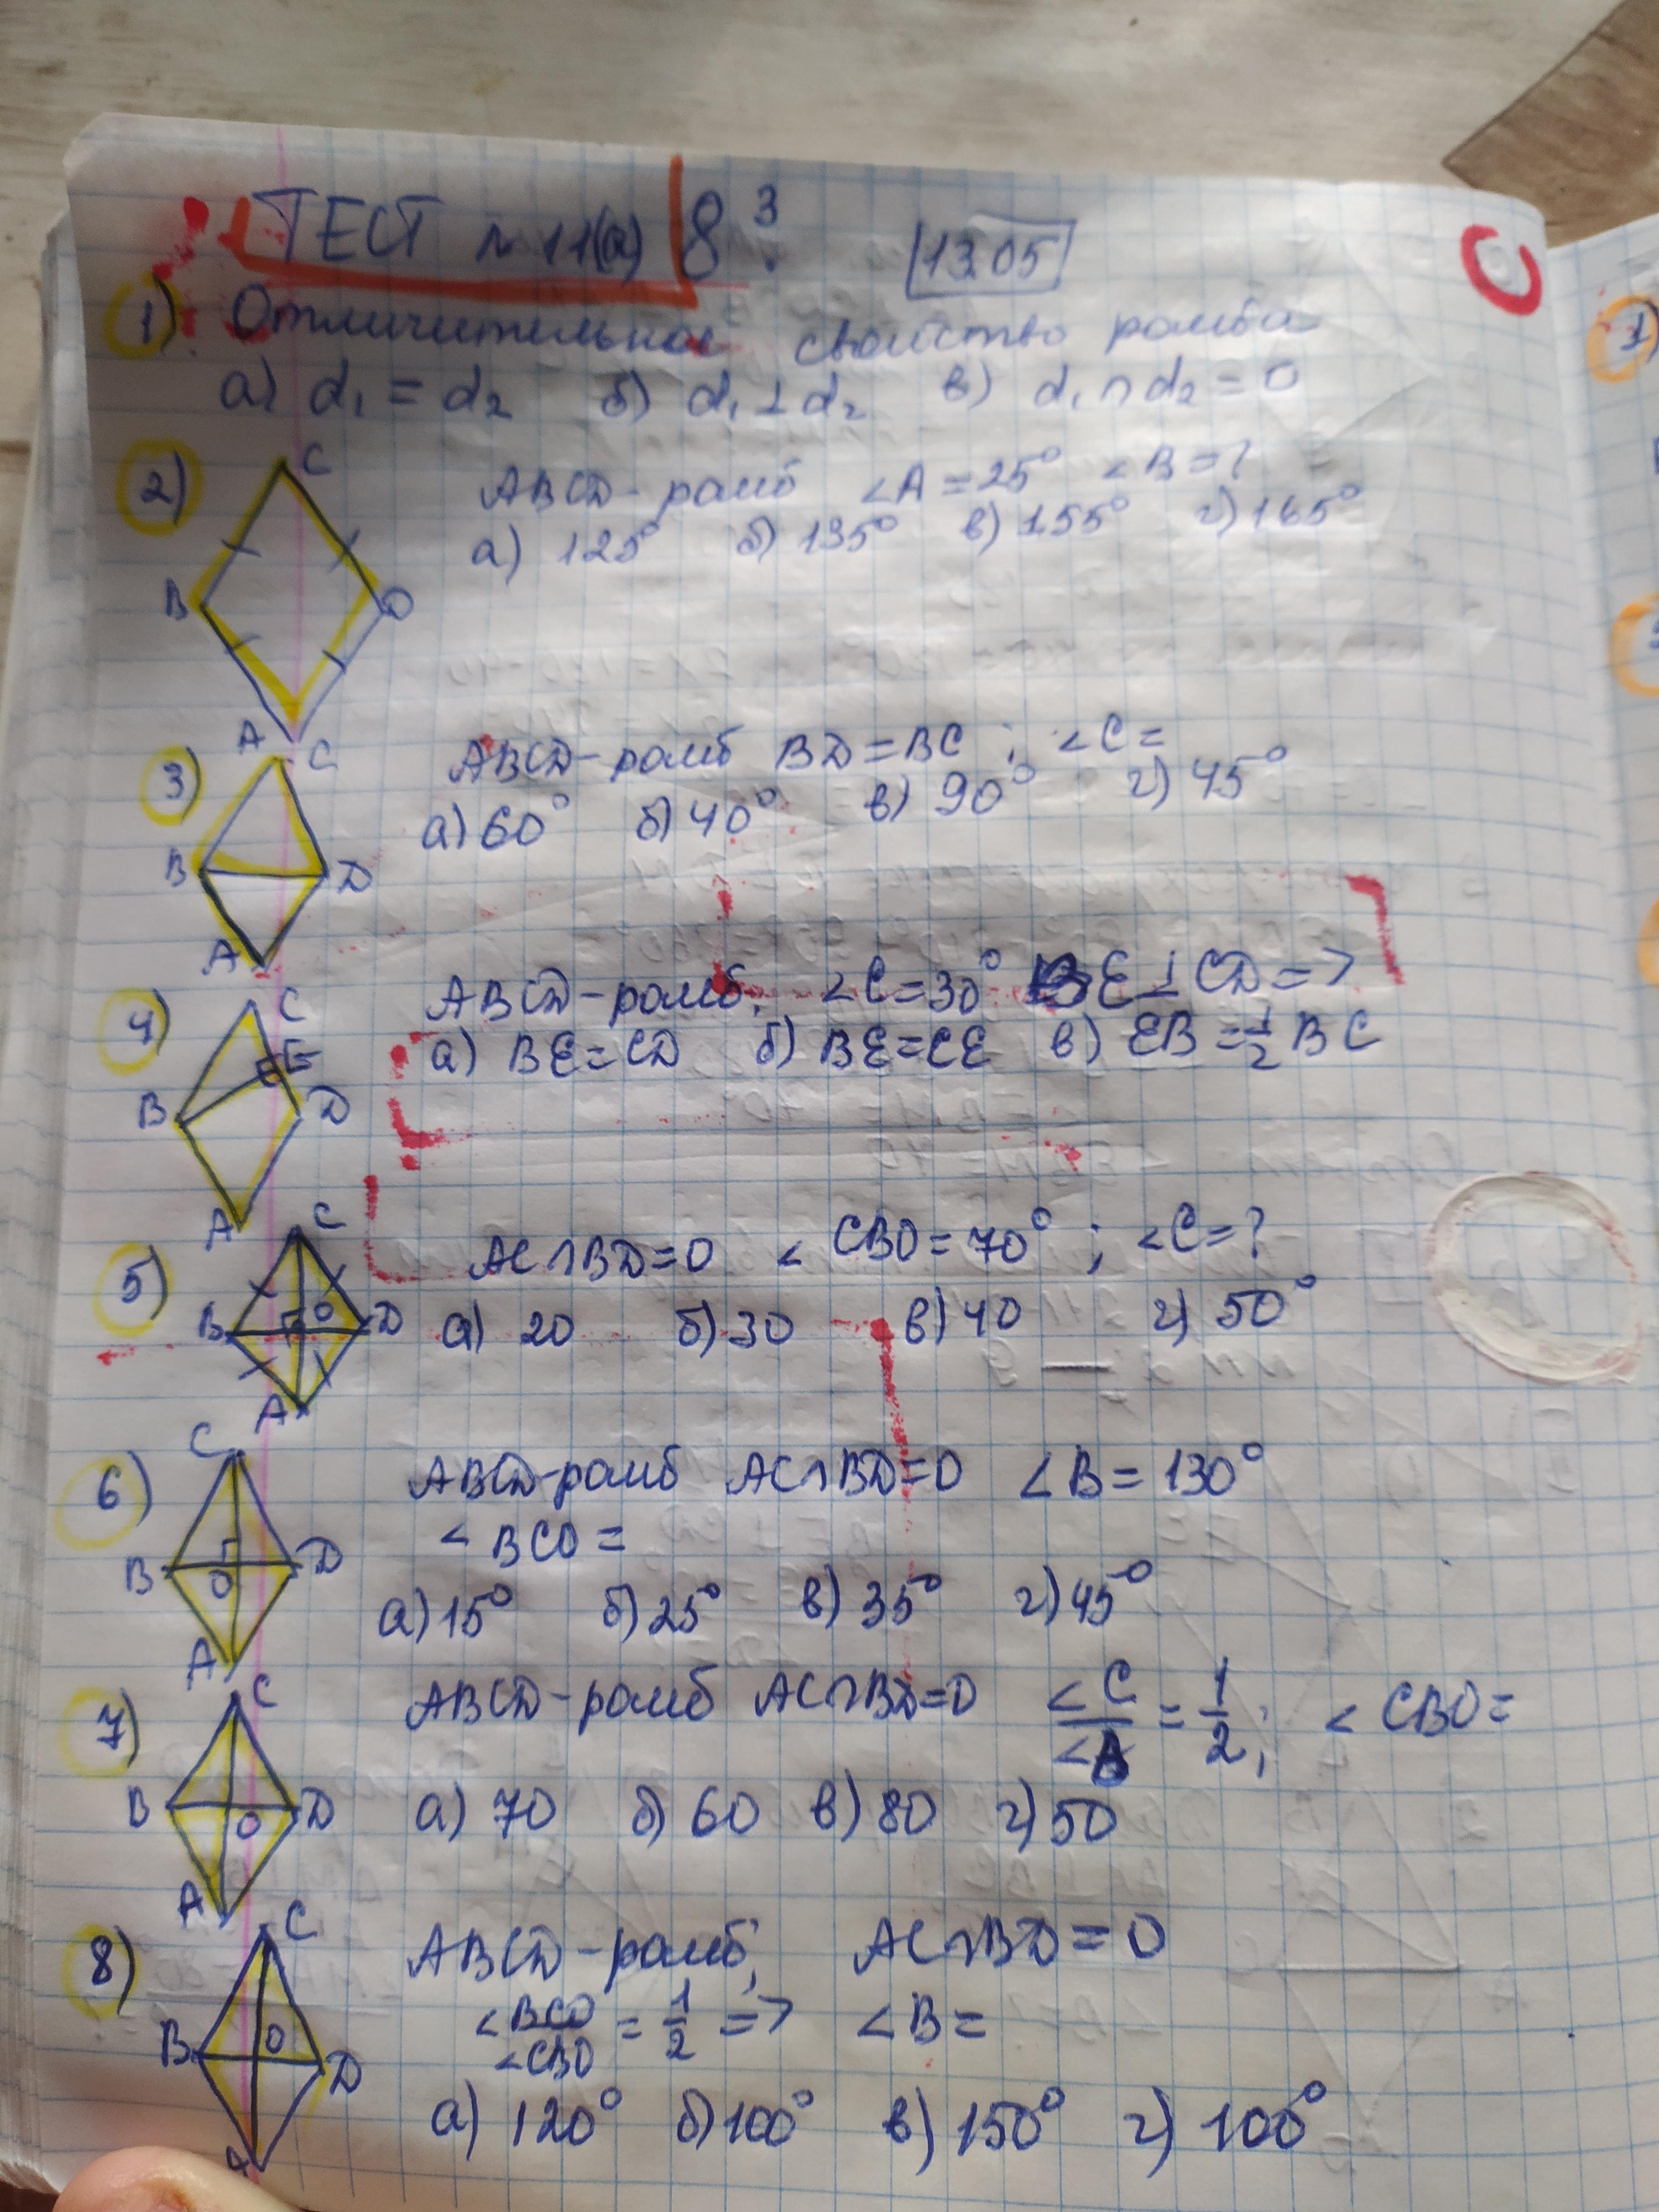 ТЕСТ №11(а) 8³.
13.05
1) Отличительное свойство ромба
а) d₁ = d₂ б) d₁ ⊥ d₂ в) d₁ ∩ d₂ = O
2) ABCD - ромб ∠A = 25° ∠B = ?
а) 125° б) 135° в) 155° г) 165°
C
B D
A
3) ABCD - ромб BD = BC ; ∠C =
а) 60° б) 40° в) 90° г) 45°
C
B D
A
4) ABCD - ромб, ∠C = 30° BE ⊥ CD =>
а) BE = CD б) BE = CE в) EB = 1/2 BC
C
E
B D
A
5) AC ∩ BD = O ∠ CBO = 70° ; ∠C = ?
а) 20 б) 30 в) 40 г) 50°
C
B O D
A
6) ABCD - ромб AC ∩ BD = O ∠B = 130°
∠ BCO =
а) 15° б) 25° в) 35° г) 45°
C
B O D
A
7) ABCD - ромб AC ∩ BD = O ∠C/∠B = 1/2 ; ∠ CBO =
а) 70 б) 60 в) 80 г) 50
C
B O D
A
8) ABCD - ромб; AC ∩ BD = O
∠BCO/∠CBO = 1/2 => ∠B =
а) 120° б) 100° в) 150° г) 100°
C
B O D
A
1)